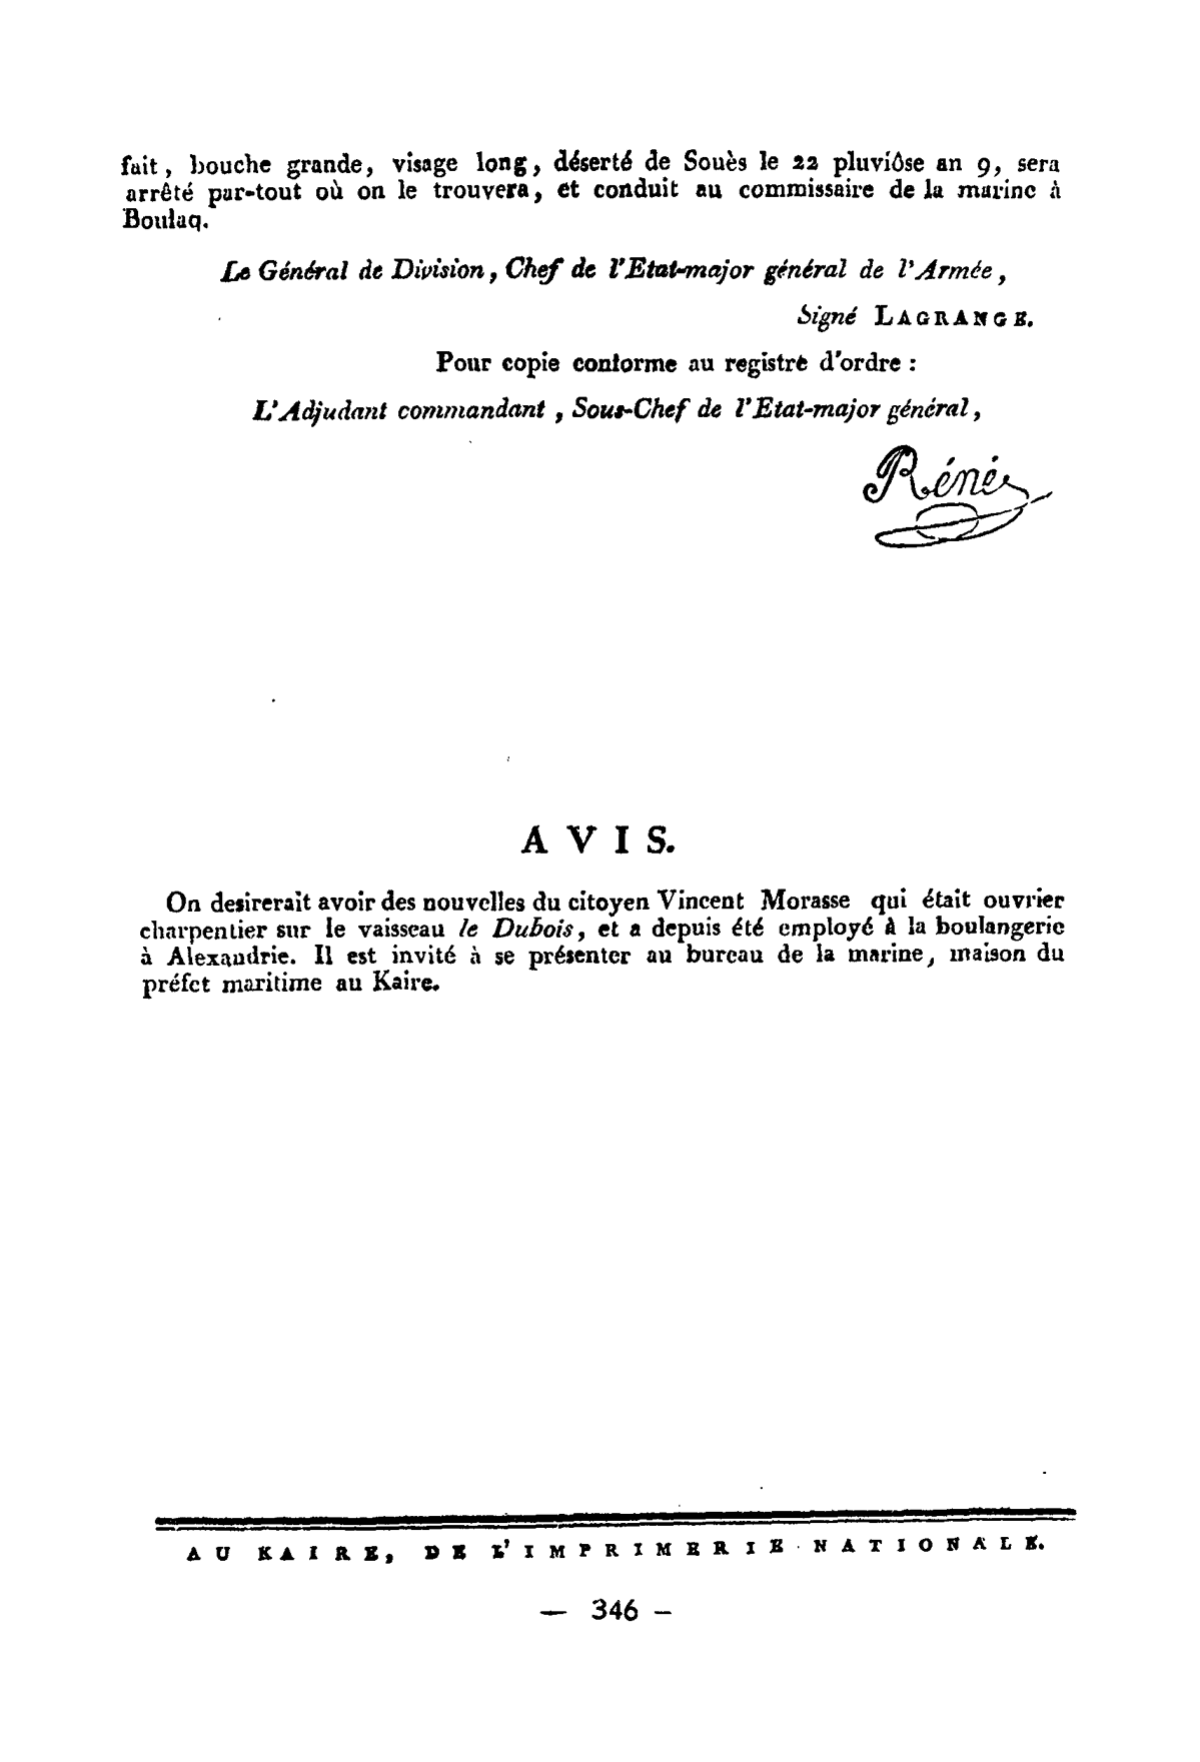 fait, bouche grande, visage long, déserté de Souès le 22 pluviôse an 9, sera
arrêté par-tout où on le trouvera, et conduit au commissaire de la marine à
Boulaq.
Le Général de Division, Chef de l'Etat-major général de l'Armée,
Signé LAGRANGE.
Pour copie conforme au registre d'ordre :
L'Adjudant commandant, Sous-Chef de l'Etat-major général,
Réné
AVIS.
On desirerait avoir des nouvelles du citoyen Vincent Morasse qui était ouvrier
charpentier sur le vaisseau le Dubois, et a depuis été employé à la boulangerie
à Alexandrie. Il est invité à se présenter au bureau de la marine, maison du
préfet maritime au Kaire.
AU KAIRE, DE L'IMPRIMERIE NATIONALE.
— 346 –